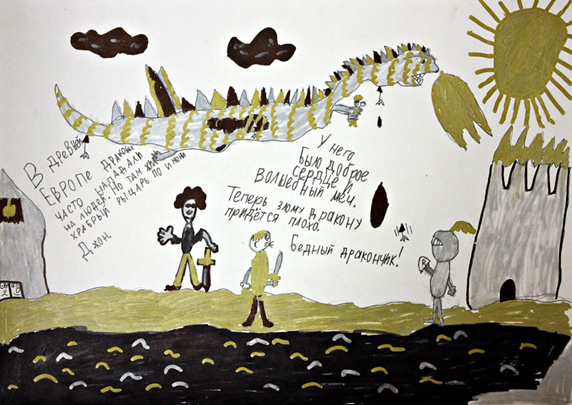 В древней
Европе драконы
часто нападали
на людей. Но там жил
храбрый рыцарь по имени
Джон.
У него
было доброе
сердце и
волшебный меч.
Теперь злому дракону
придётся плохо.
Бедный дракончик!